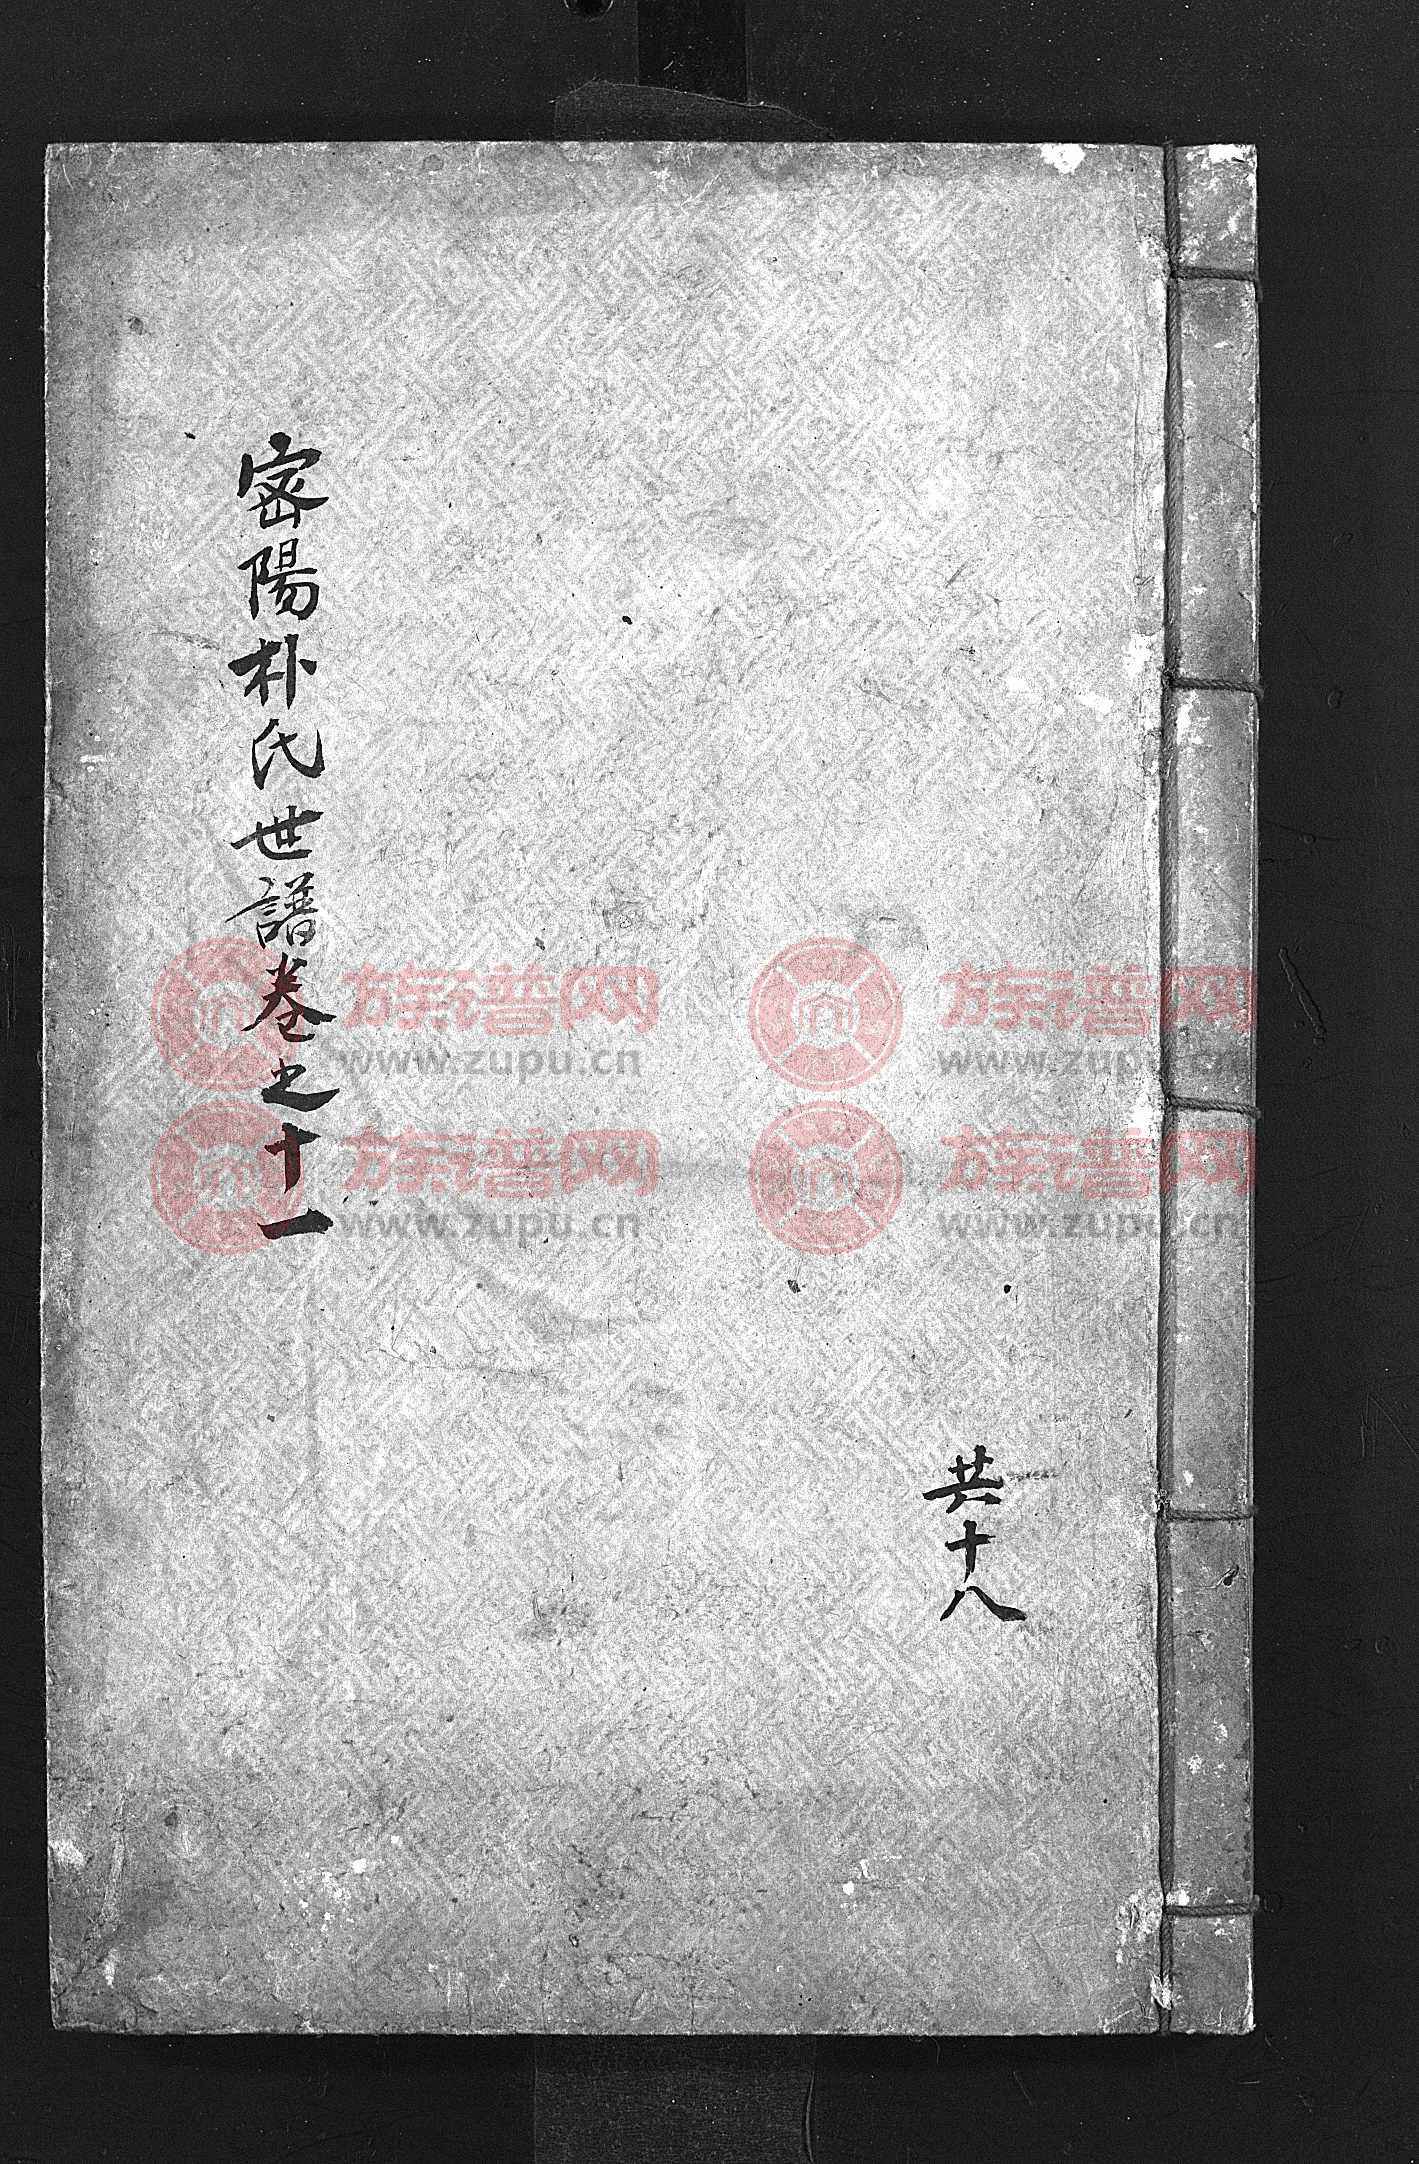 共十八
密陽朴氏世譜卷之十一
族谱网
www.zupu.cn
族谱网
www.zupu.cn
族谱网
www.zupu.cn
族谱网
www.zupu.cn